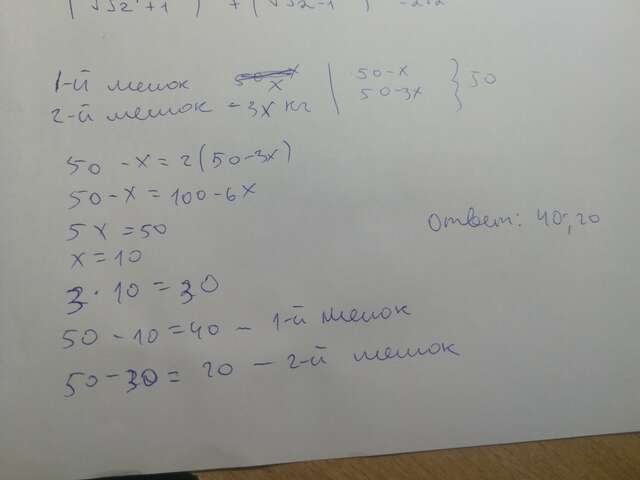 1-й мешок x | 50-x } 50
2-й мешок = 3x кг | 50-3x
50 - x = 2(50-3x)
50 - x = 100 - 6x
5x = 50
x = 10
Ответ: 40; 20
3 · 10 = 30
50 - 10 = 40 - 1-й мешок
50 - 30 = 20 - 2-й мешок